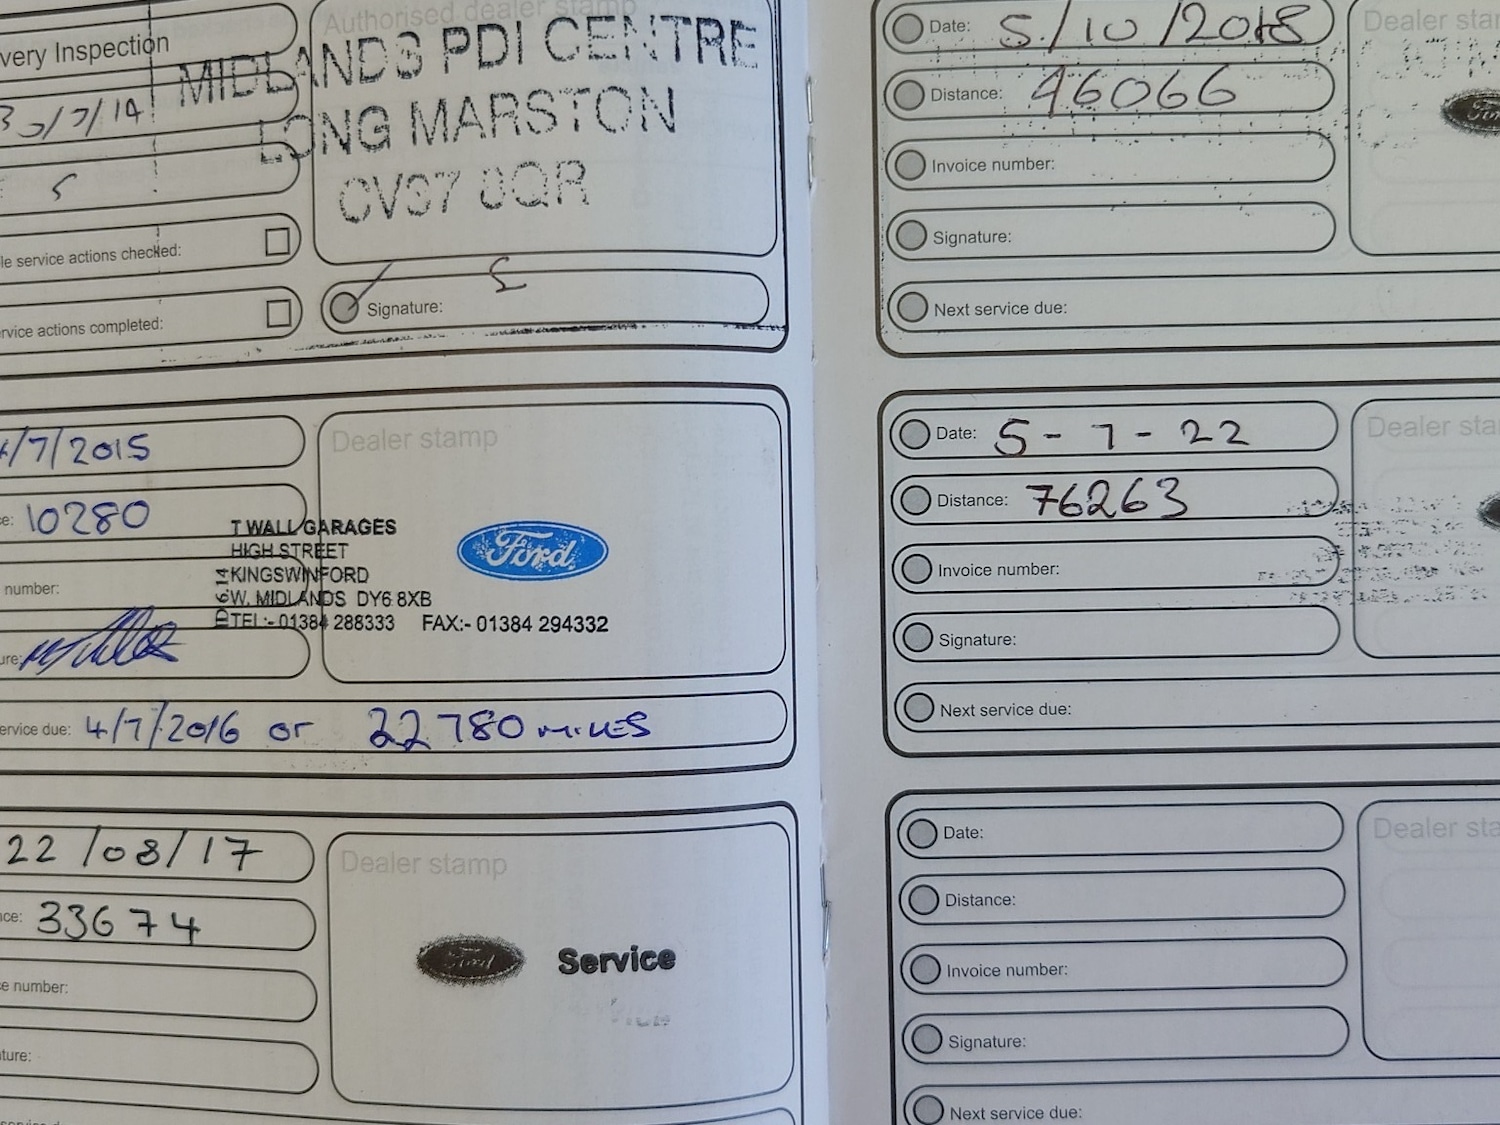 very Inspection
Authorised dealer stamp
MIDLANDS PDI CENTRE
LONG MARSTON
CV37 8QR
30/7/14
5
le service actions checked:
rvice actions completed:
Signature:
4/7/2015
Dealer stamp
ce: 10280
T WALL GARAGES
HIGH STREET
KINGSWINFORD
W. MIDLANDS DY6 8XB
TEL:- 01384 288333 FAX:- 01384 294332
Ford
number:
ure:
ervice due: 4/7/2016 or 22780 MILES
22/08/17
Dealer stamp
nce: 33674
Ford Service
ce number:
ature:
Date: 5/10/2018
Dealer sta
Distance: 46066
Ford
Invoice number:
Signature:
Next service due:
Date: 5-7-22
Dealer sta
Distance: 76263
Invoice number:
Signature:
Next service due:
Date:
Dealer sta
Distance:
Invoice number:
Signature:
Next service due: